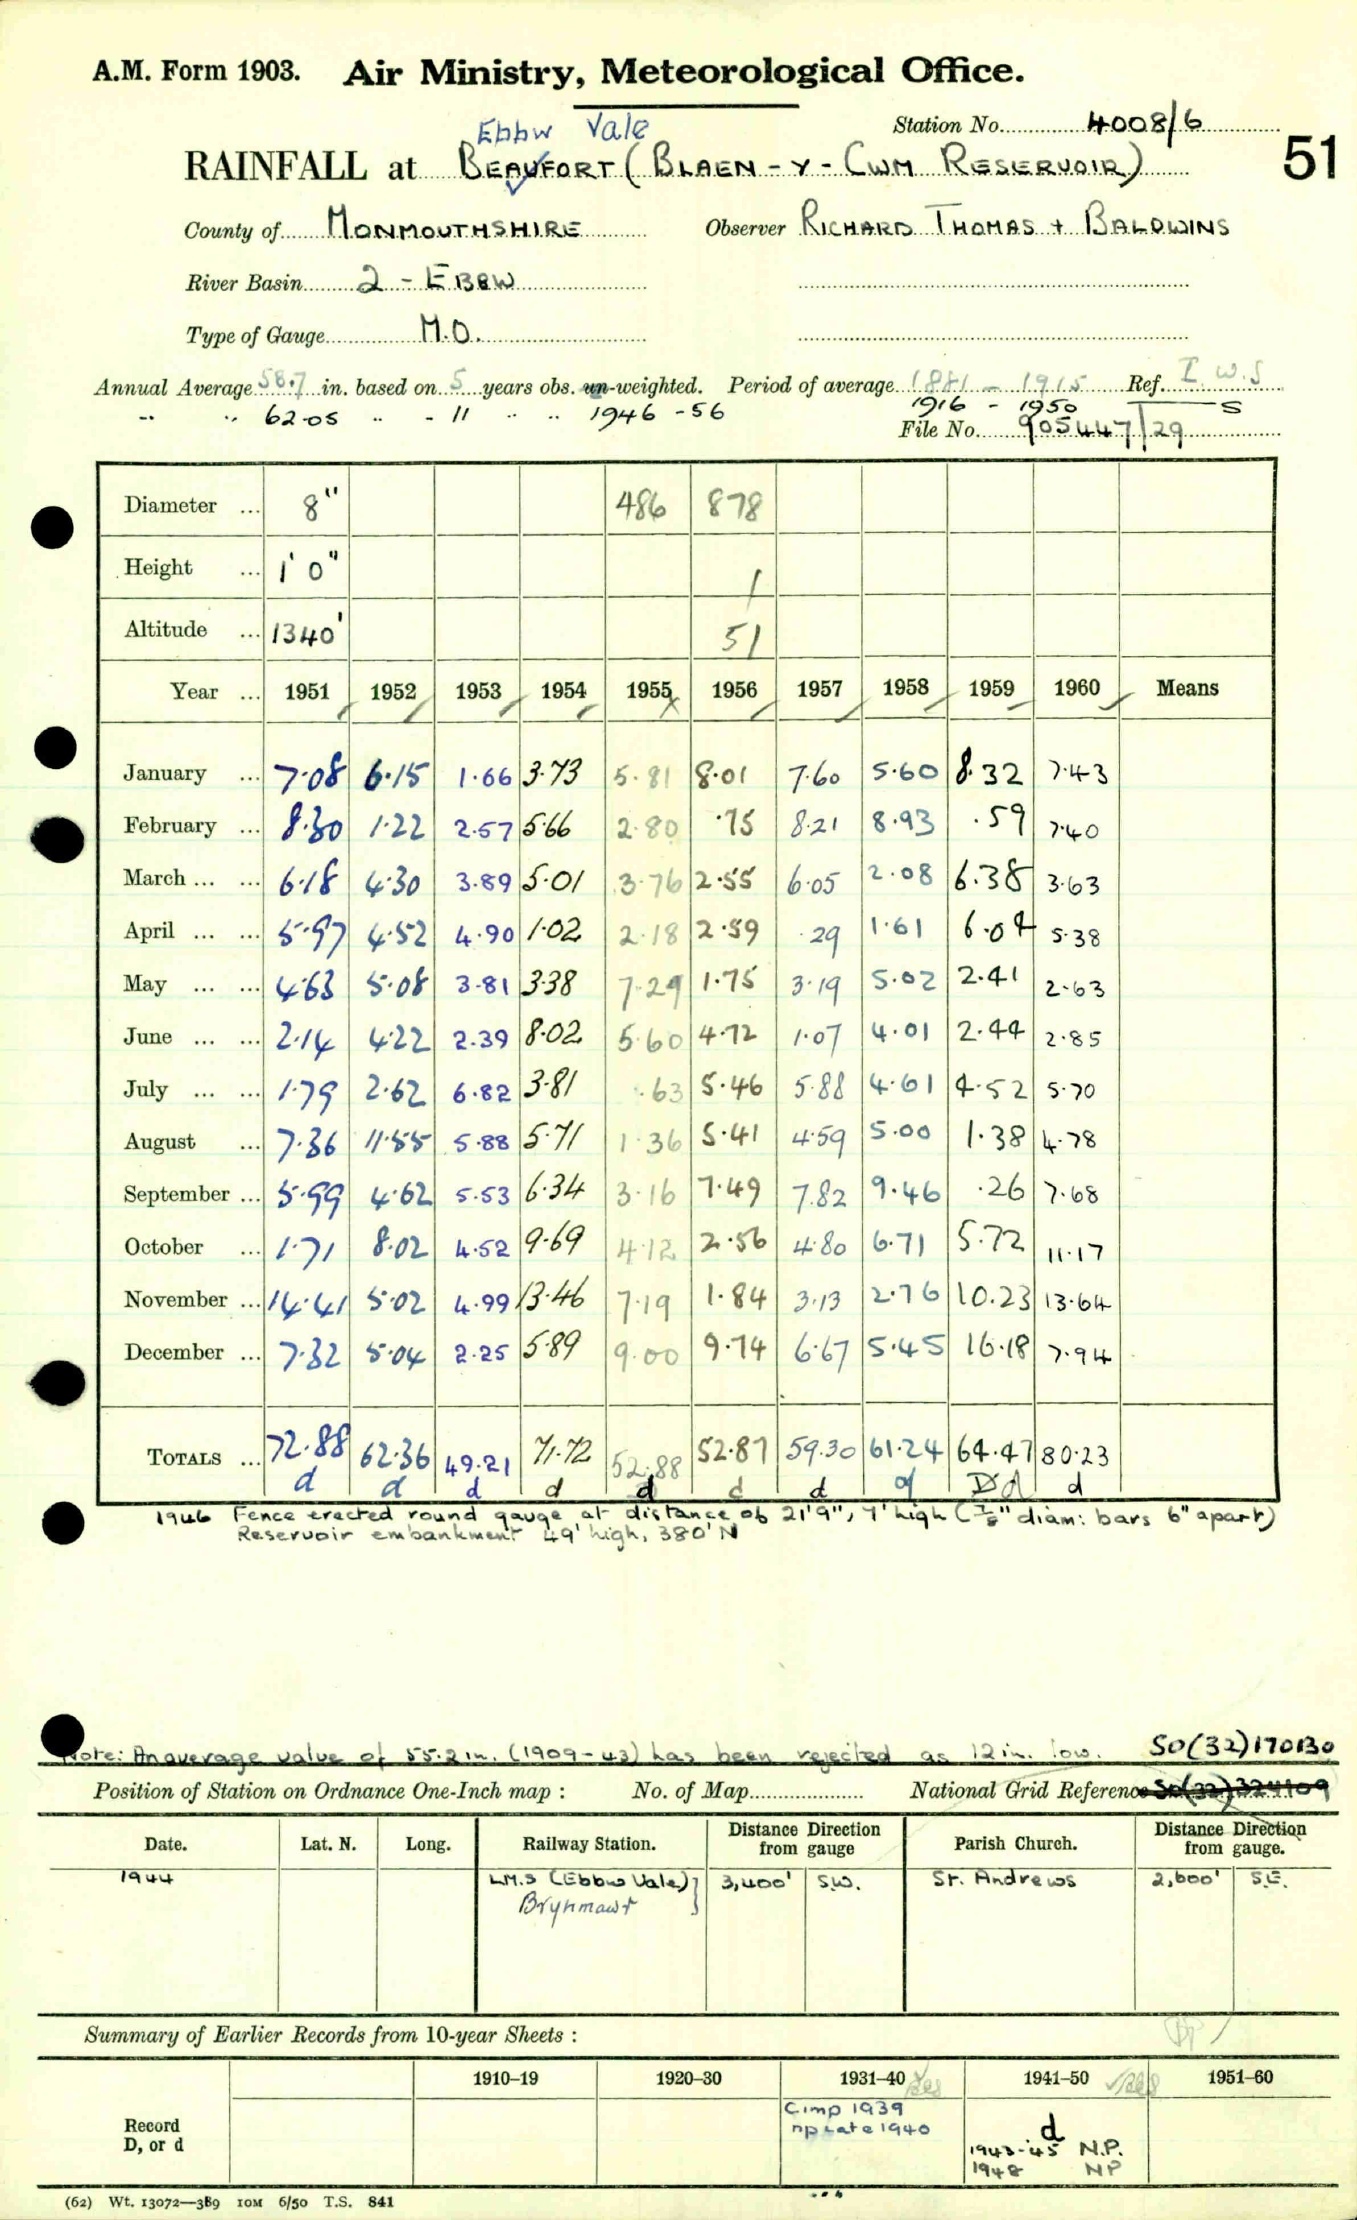 A.M. Form 1903. Air Ministry, Meteorological Office.
Station No. 4008/6
Ebbw Vale
RAINFALL at BEAUFORT (BLAEN-Y-CWM RESERVOIR)
51
County of MONMOUTHSHIRE Observer RICHARD THOMAS + BALDWINS
River Basin 2 - EBBW
Type of Gauge M.O.
Annual Average 58.7 in. based on 5 years obs. un-weighted. Period of average 1881 - 1915 Ref. I.W.S
" " 62.05 " - 11 " " 1946 - 56 1916 - 1950 S
File No. 905447/29
Diameter ... 8" 486 878
Height ... 1' 0" 1
Altitude ... 1340' 51
Year ... 1951 1952 1953 1954 1955 1956 1957 1958 1959 1960 Means
January ... 7.08 6.15 1.66 3.73 5.81 8.01 7.60 5.60 8.32 7.43
February ... 8.30 1.22 2.57 5.66 2.80 .75 8.21 8.93 .59 7.40
March ... ... 6.18 4.30 3.89 5.01 3.76 2.55 6.05 2.08 6.38 3.63
April ... ... 5.97 4.52 4.90 1.02 2.18 2.59 .29 1.61 6.04 5.38
May ... ... 4.63 5.08 3.81 3.38 7.29 1.75 3.19 5.02 2.41 2.63
June ... ... 2.14 4.22 2.39 8.02 5.60 4.72 1.07 4.01 2.44 2.85
July ... ... 1.79 2.62 6.82 3.81 .63 5.46 5.88 4.61 4.52 5.70
August ... 7.36 11.55 5.88 5.71 1.36 5.41 4.59 5.00 1.38 4.78
September ... 5.99 4.62 5.53 6.34 3.16 7.49 7.82 9.46 .26 7.68
October ... 1.71 8.02 4.52 9.69 4.12 2.56 4.80 6.71 5.72 11.17
November ... 14.41 5.02 4.99 13.46 7.19 1.84 3.13 2.76 10.23 13.64
December ... 7.32 5.04 2.25 5.89 9.00 9.74 6.67 5.45 16.18 7.94
TOTALS ... 72.88 62.36 49.21 71.72 52.88 52.87 59.30 61.24 64.47 80.23
d d d d d d d d Dd d
1946 Fence erected round gauge at distance of 21'9", 7' high (7/8" diam: bars 6" apart)
Reservoir embankment 49' high, 380' N
Note: An average value of 55.2 in. (1909-43) has been rejected as 12 in. low. SO(32)170130
Position of Station on Ordnance One-Inch map : No. of Map National Grid Reference SO(32)324109
Date. Lat. N. Long. Railway Station. Distance from Direction gauge Parish Church. Distance from Direction gauge.
1944 L.M.S (Ebbw Vale) 3,400' S.W. St. Andrews 2,600' S.E.
Brynmawr
Summary of Earlier Records from 10-year Sheets :
1910–19 1920–30 1931–40 1941–50 1951–60
Record
D, or d
Comp 1939
np late 1940
d
1943-45 N.P.
1948 NP
(62) Wt. 13072—3B9 10M 6/50 T.S. 841